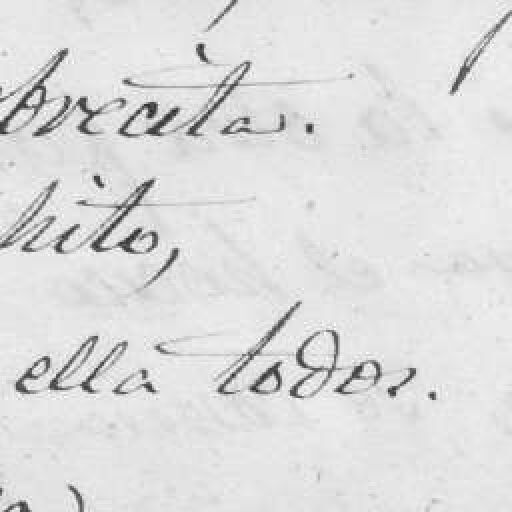 obrecita.
hito,
ella todos.